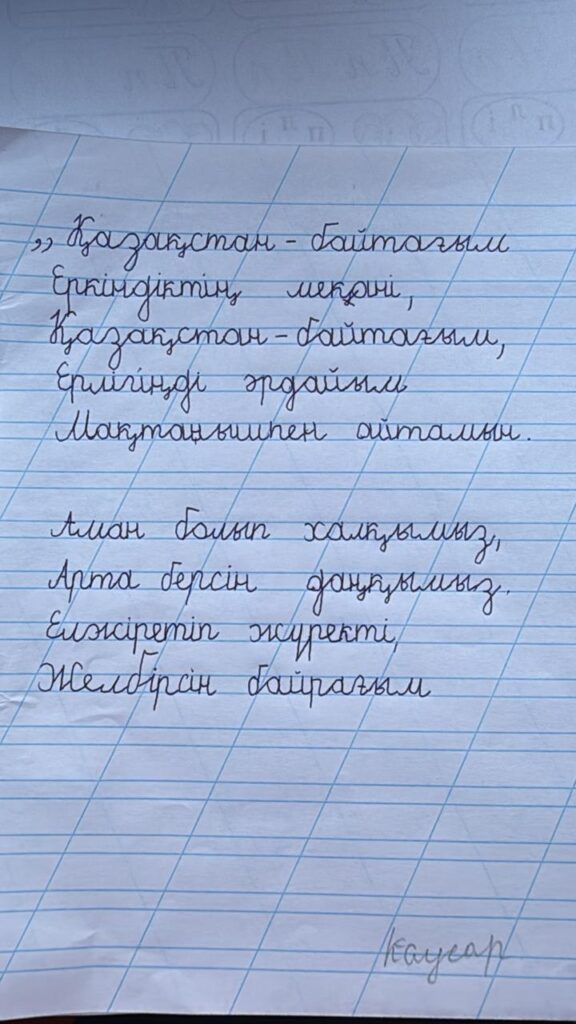 „ Қазақстан - байтағым
Еркіндіктің мекәні,
Қазақстан - байтағым,
Ерлігіңді әрдайым
Мақтаңышпен айтамын.
Аман болып халқымыз,
Арта берсін даңқымыз.
Елжіретіп жүректі,
Желбірсін байрағым
Каусар